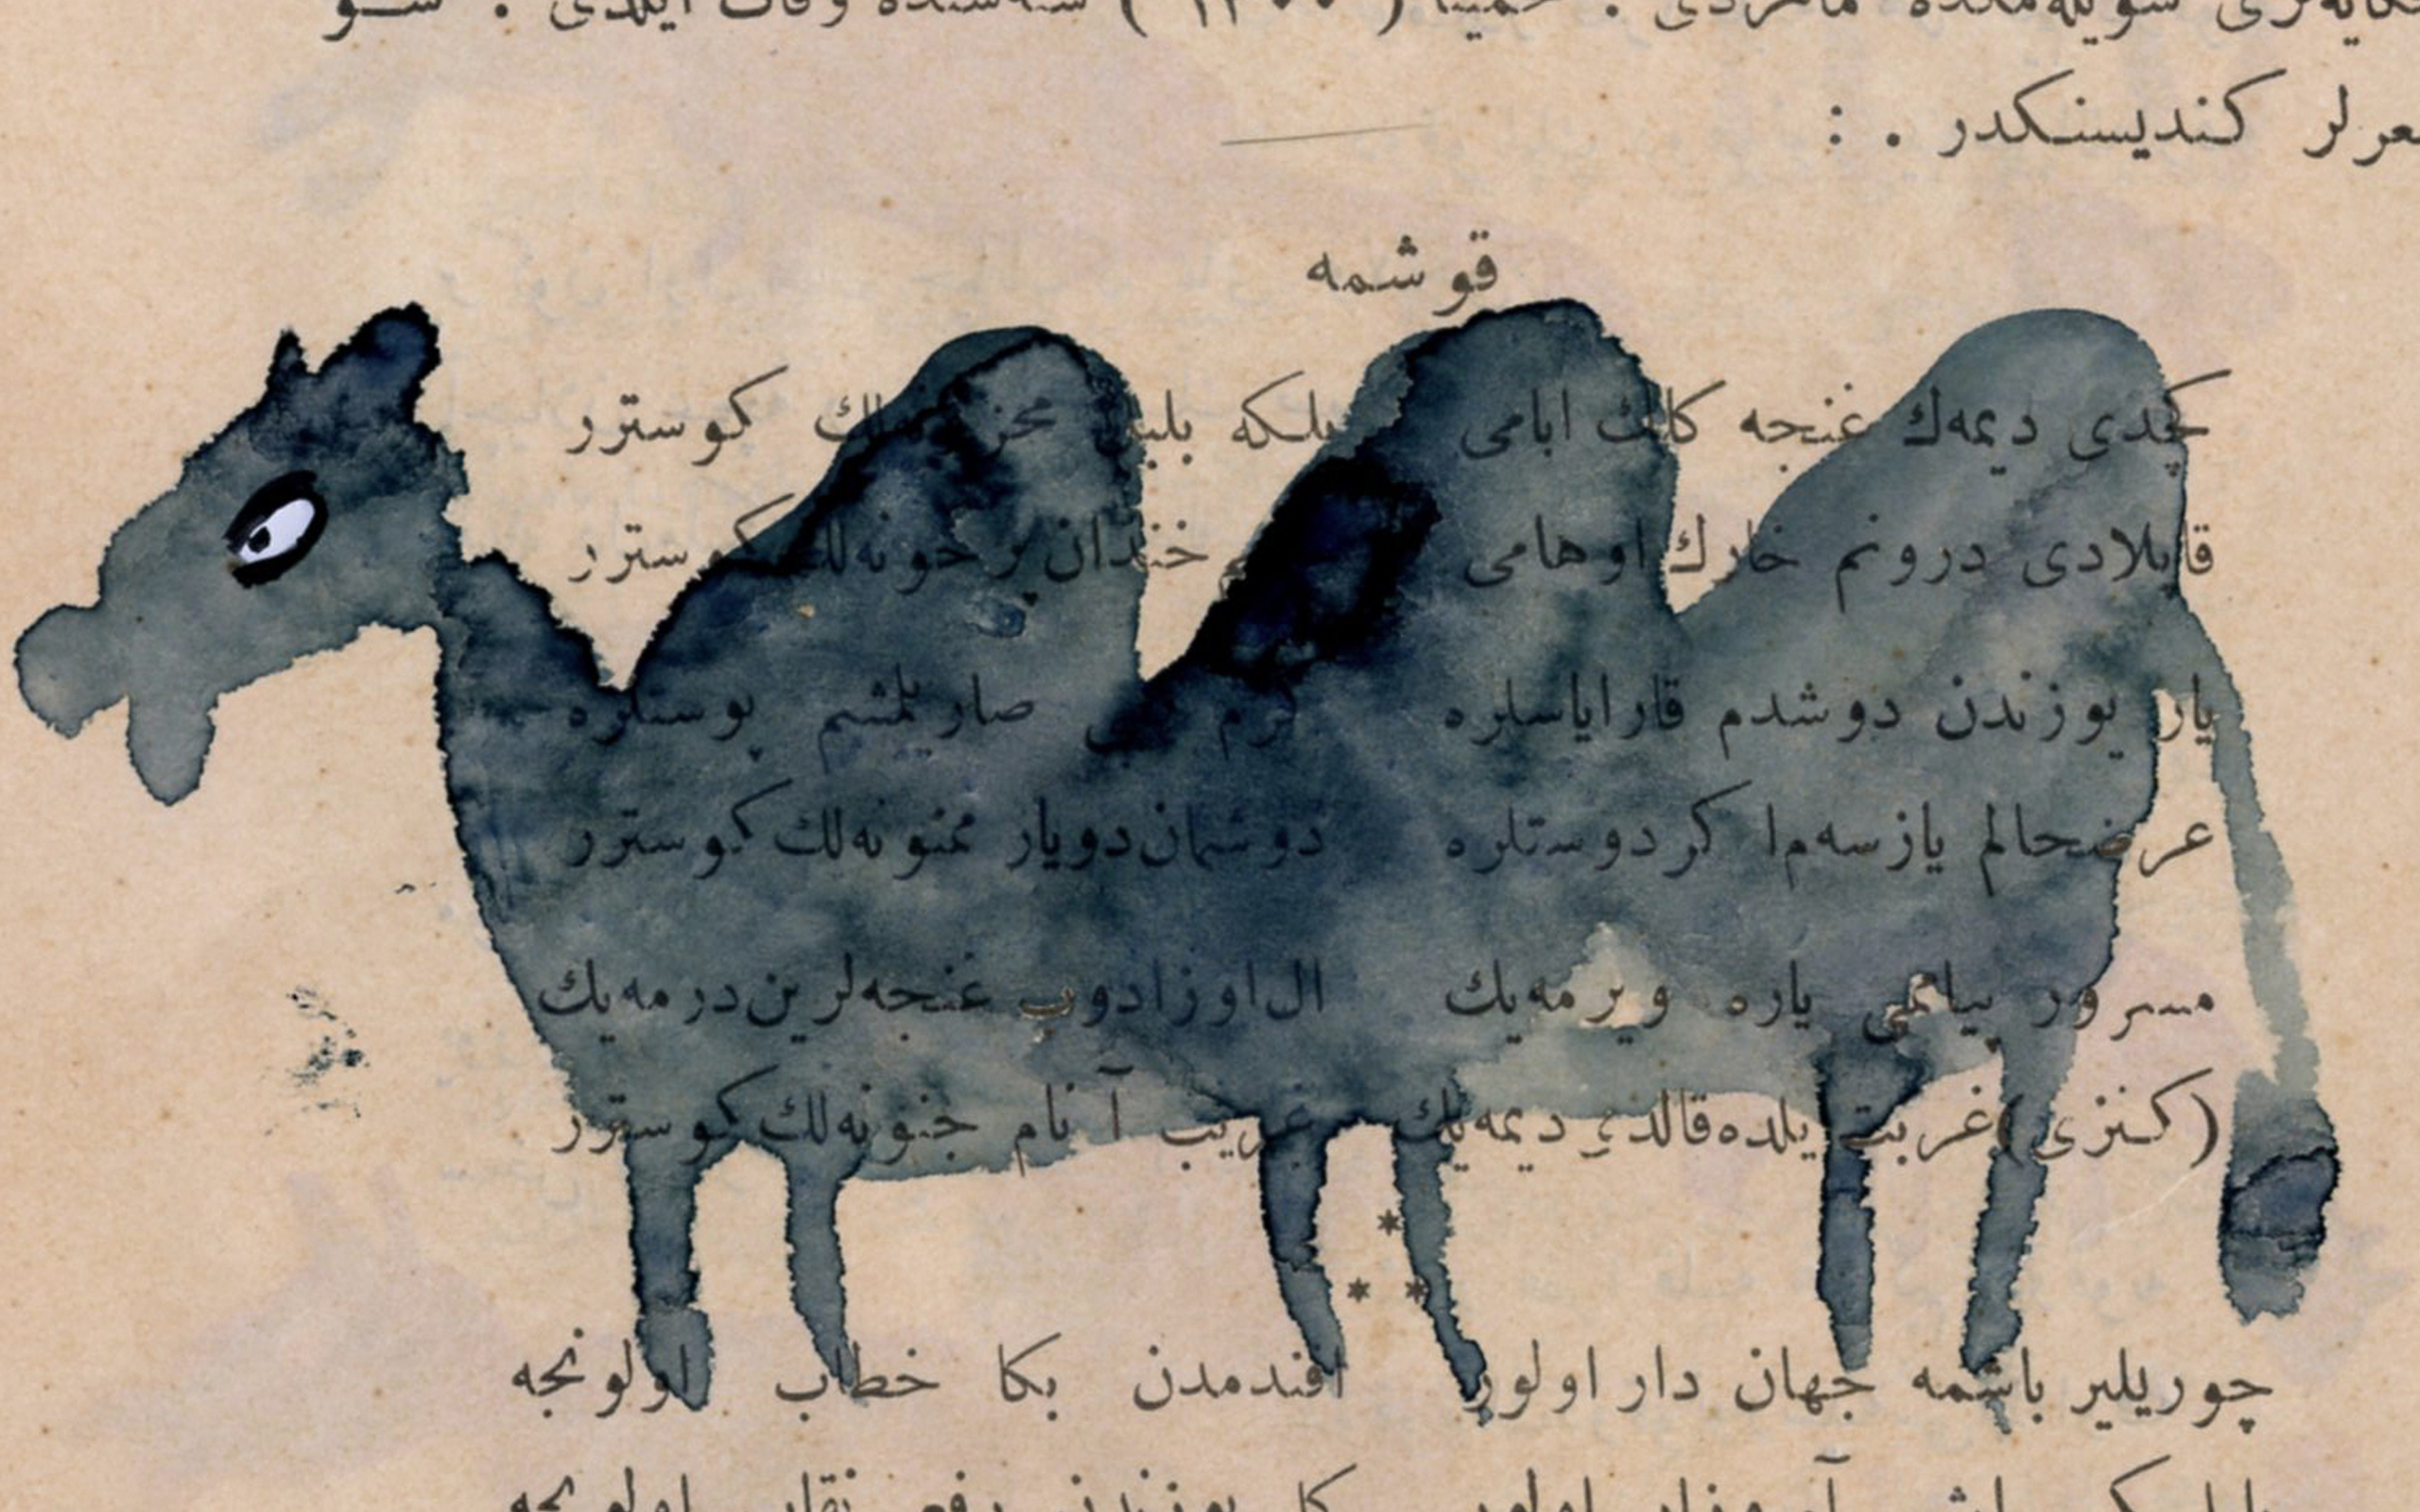 سویله‌مکده ماهردی . سنه‌سنده وفات ایلدی . شو
لر کندیسنکدر . :
قوشمه
کچدی دیمه‌ك غنجه کلك ایامی بلکه بلبل کوسترر
قاپلادی درونم خارك اوهامی خندان کوسترر
یار یوزندن دوشدم قارایاسلره کرم صاریلمشم پوستلره
عرضحالم یازسه‌م ا کر دوستلره دوشمان دویار ممنونه‌لك کوسترر
مسرور پیامی یاره ویرمه‌یك ال اوزادوب غنجه‌لرین درمه‌یك
(کنزی) غربت یلده قالدی دیمه‌یك غریب آنام جنونه‌لك کوسترر
* * *
چوریلیر باشمه جهان دار اولور افندمدن بکا خطاب اولونجه
یوزندن رفع نقاب اولونجه